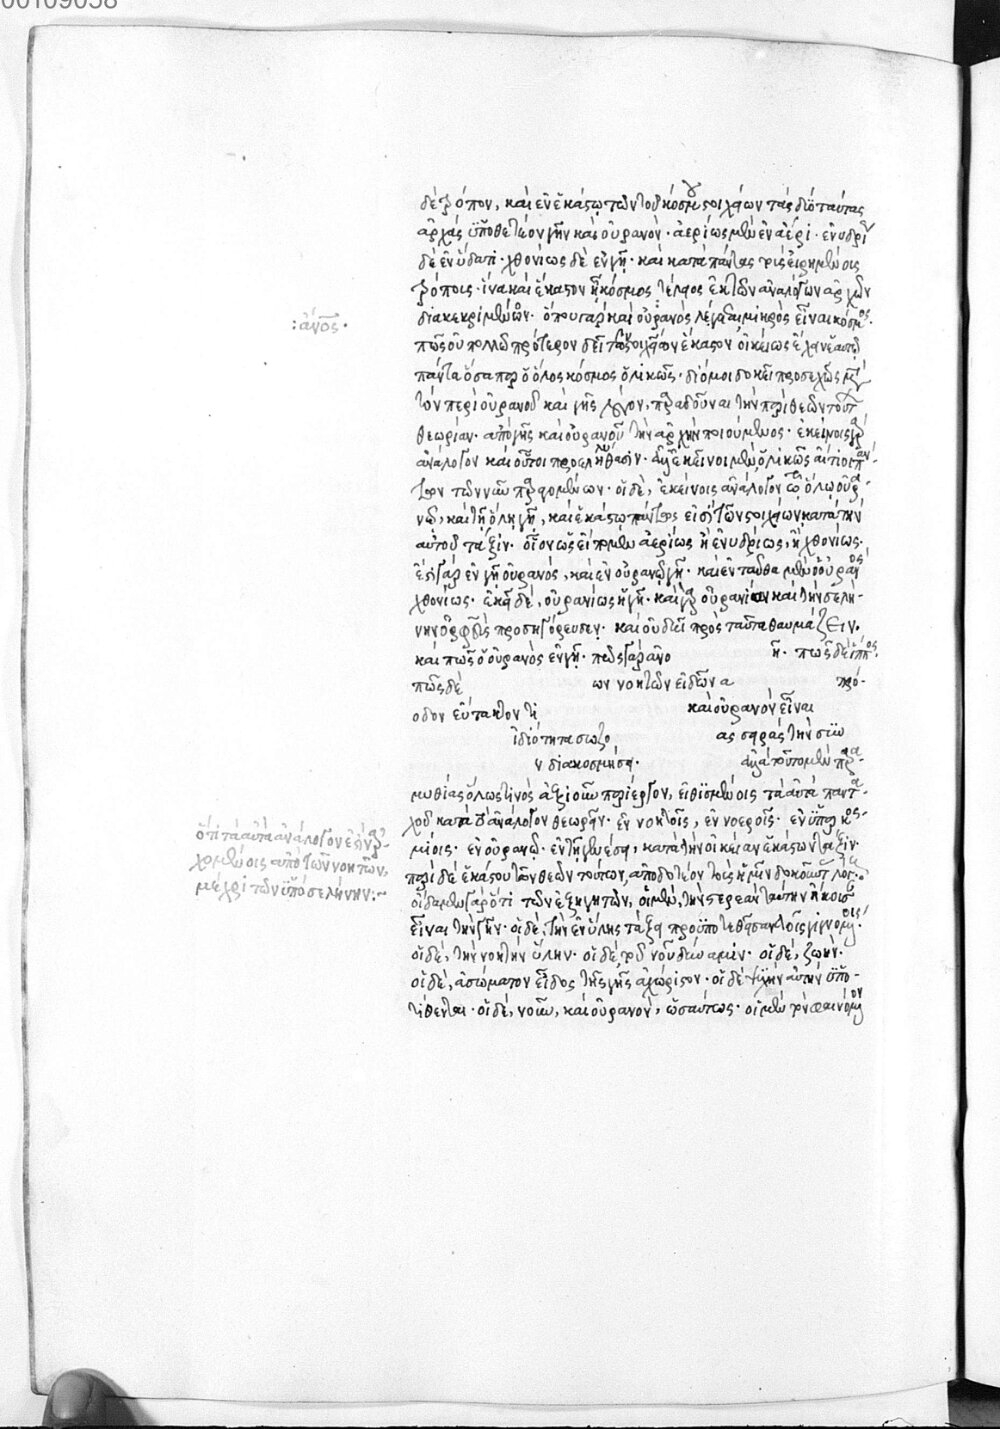 00109058
δὲ τρόπον, καὶ ἐν ἑκάστῳ τῶν τοῦ κόσμου στοιχείων τὰς διὸ ταύτας
ἀρχὰς ὑποθετέον γῆν καὶ οὐρανόν· ἀερίως μὲν ἐν ἀέρι· ἐνυδρί
δὲ ἐν ὕδατι· χθονίως δὲ ἐν γῇ· καὶ κατὰ πάντας τοῖς εἰρημένοις
τρόποις· ἵνα καὶ ἕκαστον ᾖ κόσμος τέλειος ἐκ τῶν ἀναλόγων ἀρχῶν
διακεκριμένων· ὅπου γὰρ καὶ οὐρανὸς λέγεται μικρὸς εἶναι κόσμος·
:ἄνος·
πῶς οὐ πολλῷ πρότερον δεῖ τῶν στοιχείων ἕκαστον οἰκείως ἔχειν ἐν αὐτῷ
πάντα ὅσαπερ ὁ ὅλος κόσμος ὁλικῶς· διό μοι δοκεῖ προσεχῶς μετὰ
τὸν περὶ οὐρανοῦ καὶ γῆς λόγον, παραδοῦναι τὴν περὶ θεῶν τούτων
θεωρίαν· ἀπὸ γῆς καὶ οὐρανοῦ τὴν ἀρχὴν ποιούμενος· ἐκείνοις γὰρ
ἀνάλογον καὶ οὗτοι προεληλύθασιν· ἀλλ' ἐκεῖνοι μὲν, ὁλικῶς αἴτιοι πάν-
των τῶν νῦν παραγομένων· οἱ δὲ, ἐκείνοις ἀνάλογον ἐν τῷ ὅλῳ οὐρα-
νῷ, καὶ τῇ ὅλῃ γῇ, καὶ ἑκάστῳ πάντως εἰσὶ τῶν στοιχείων κατὰ τὴν
αὐτοῦ τάξιν· οἷον ὡς εἴπομεν ἀερίως ἢ ἐνυδρίως, ἢ χθονίως·
ἔστι γὰρ ἐν γῇ οὐρανός, καὶ ἐν οὐρανῷ γῆ· καὶ ἐνταῦθα μὲν ὁ οὐρανὸς
χθονίως· ἐκεῖ δὲ, οὐρανίως ἡ γῆ· καὶ γὰρ οὐρανίαν καὶ τὴν σελή-
νην ὀρφεὺς προσηγόρευσεν· καὶ οὐ δεῖ πρὸς ταῦτα θαυμάζειν·
καὶ πῶς ὁ οὐρανὸς ἐν γῇ· πῶς γὰρ ἄνο ῆ· πῶς δὲ ἵππος·
πῶς δὲ ων νοητῶν εἰδῶν α πρό-
οδον εὔτακτον τι καὶ οὐρανὸν εἶναι
ἰδιότητα σωζο ας σειρὰς τὴν σύν
ν διακοσμήσει· ἀλλὰ τοῦτο μὲν παρα-
μυθίας ὅλως τινὸς ἀξιοῦν περίεργον, εἰθισμένοις τὰ αὐτὰ παντα-
χοῦ κατὰ τὸ ἀνάλογον θεωρεῖν· ἐν νοητοῖς, ἐν νοεροῖς· ἐν ὑπερκοσ-
μίοις· ἐν οὐρανῷ· ἐν τῇ γενέσει, κατὰ τὴν οἰκείαν ἑκάστων τάξιν·
ὅτι τὰ αὐτὰ ἀνάλογον ἐστὶν ἀρ-
χομένοις ἀπὸ τῶν νοητῶν,
μέχρι τῶν ὑπὸ σελήνην:~
περὶ δὲ ἑκάστου τῶν θεῶν τούτων, ἀποδοτέον τοῖς ἡμῖν δοκοῦντα λόγ·
οἶδα μὲν γὰρ ὅτι τῶν ἐξηγητῶν, οἱ μὲν, τὴν στερεὰν ταύτην ἤκουσ
εἶναι τὴν γῆν· οἱ δὲ, τὴν ἐν ὕλης τάξει προϋποτεθεῖσαν τοῖς γιγνομένοις·
οἱ δὲ, τὴν νοητὴν ὕλην· οἱ δὲ, τοῦ νοῦ δύναμιν· οἱ δὲ, ζωήν·
οἱ δὲ, ἀσώματον εἶδος τῆς γῆς ἀχώριστον· οἱ δὲ ψυχὴν αὐτὴν ὑπο-
τίθενται· οἱ δὲ, νοῦν, καὶ οὐρανὸν, ὡσαύτως· οἱ μὲν τὸν φαινόμενον